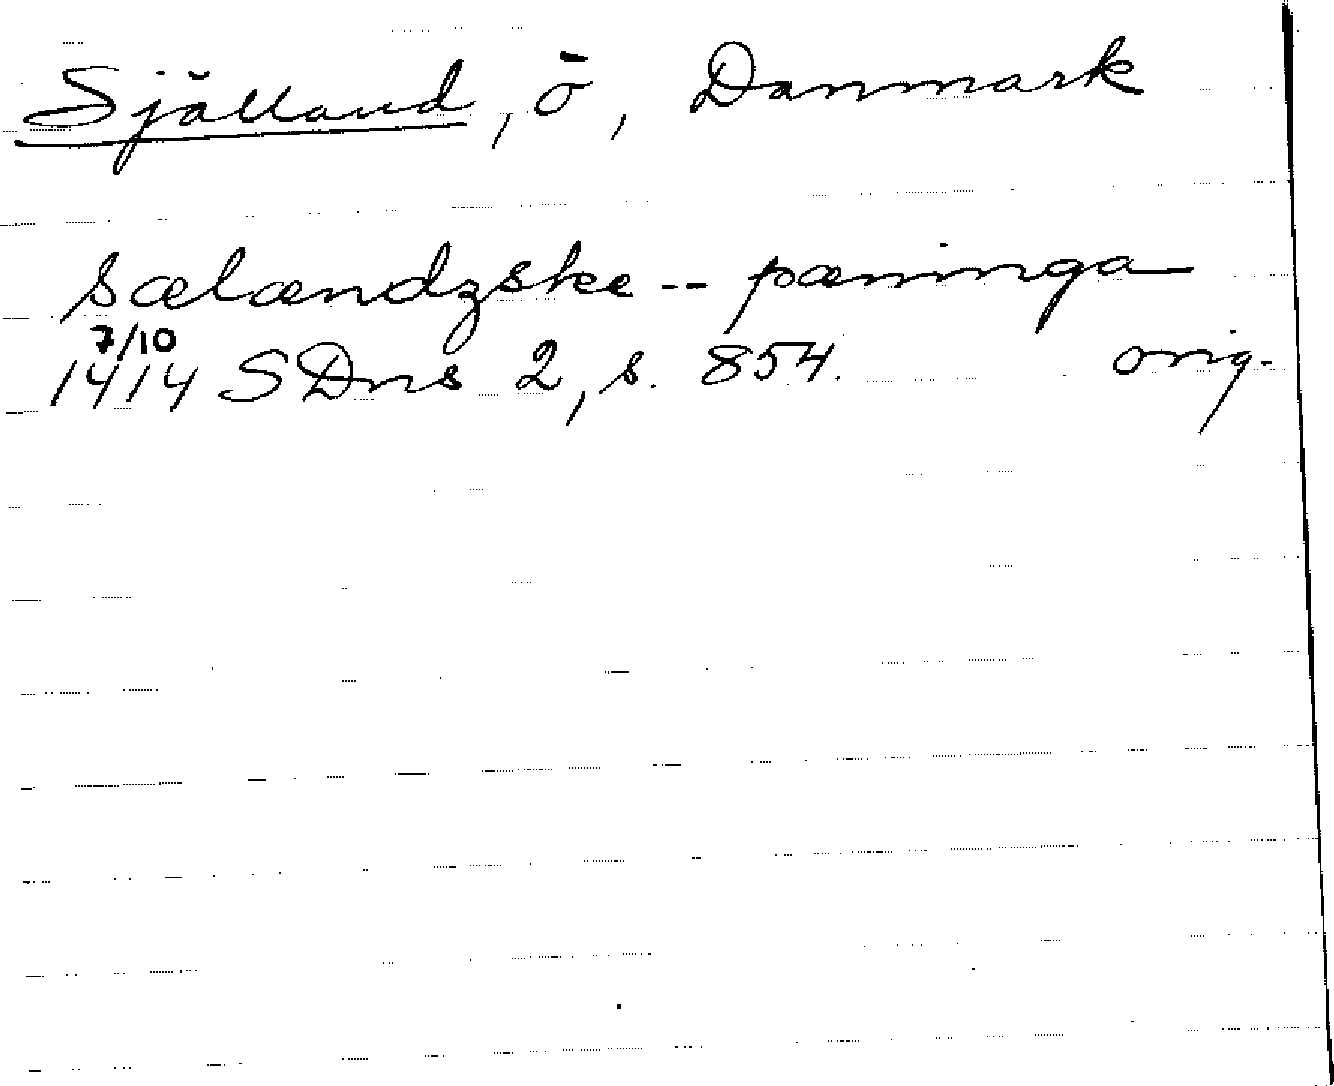 Själland, ö, Danmark
sælændzske -- pæninga
7/10
1414 SDns 2, s. 854. orig.